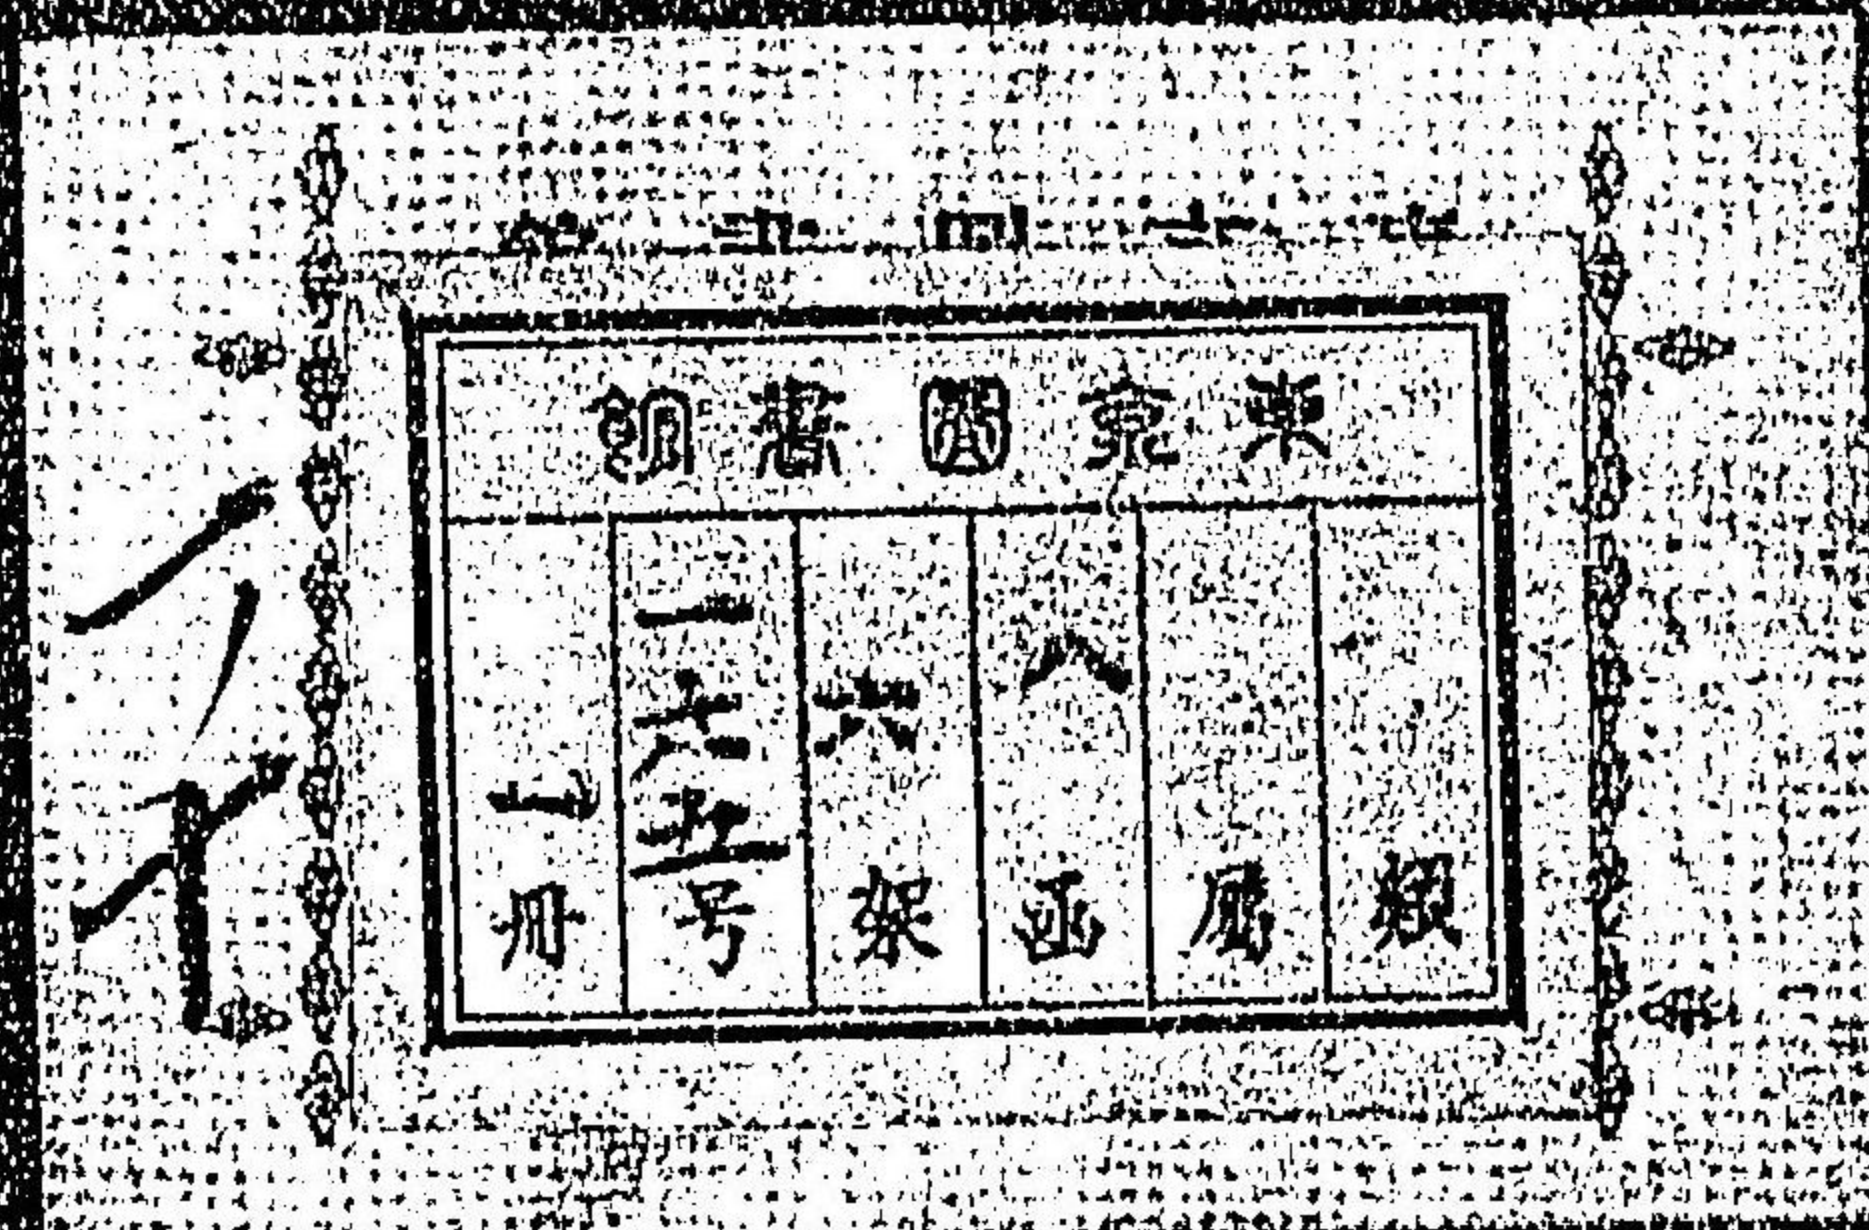 東京圖書館
類
属
八函
六架
一六五号
一冊